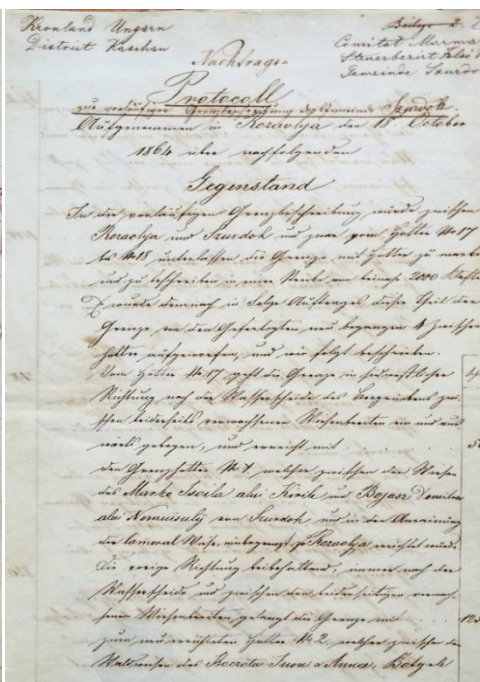 Kronland Ungarn
District Kaschau
Beilage 2.
Comitat Marma
Steuerbezirk Felső
Gemeinde Szurdo
Nachtrags-
Protocoll
zur vorläufigen Grenzbeschreibung der Gemeinde Szurdok
Aufgenommen in Rozavlja den 18 October
1864 über nachfolgenden
Gegenstand
In der vorläufigen Grenzbeschreibung wurde zwischen
Rozavlja und Szurdok und zwar vom Hotter No 17
bis No 18 unterlassen die Grenze mit Hotter zu mark
und zu beschreiben in einer Strecke von beinahe 2000 Klafter
Es wurde demnach in Folge Auftrages dieser Theil der
Grenze von den Gefertigten neu begangen 4 zwischen
hotter aufgeworfen, und wie folgt beschrieben.
Vom Hotter No 17 geht die Grenze in südwestlicher
Richtung nach der Wasserscheide des Bergrückens zwi
schen beiderseits verwachsenen Wiesenbreiten ein und aus
wärts gebogen, und erreicht mit
den Grenzhotter No 1, welcher zwischen den Wiesen
des Marko Iszila alui Kirile und Bojasz Domitru
alui von Szurdok, und in der
der Wiese zu Rozavlja errichtet wurde.
Die vorige Richtung beibehaltend, immer nach der
Wasserscheide und zwischen den beiderseitigen verwach
senen Wiesenbreiten gelangt die Grenze mit
zum neu errichteten Hotter No 2, welcher zwischen den
Waldwiesen des Juon a Anna,